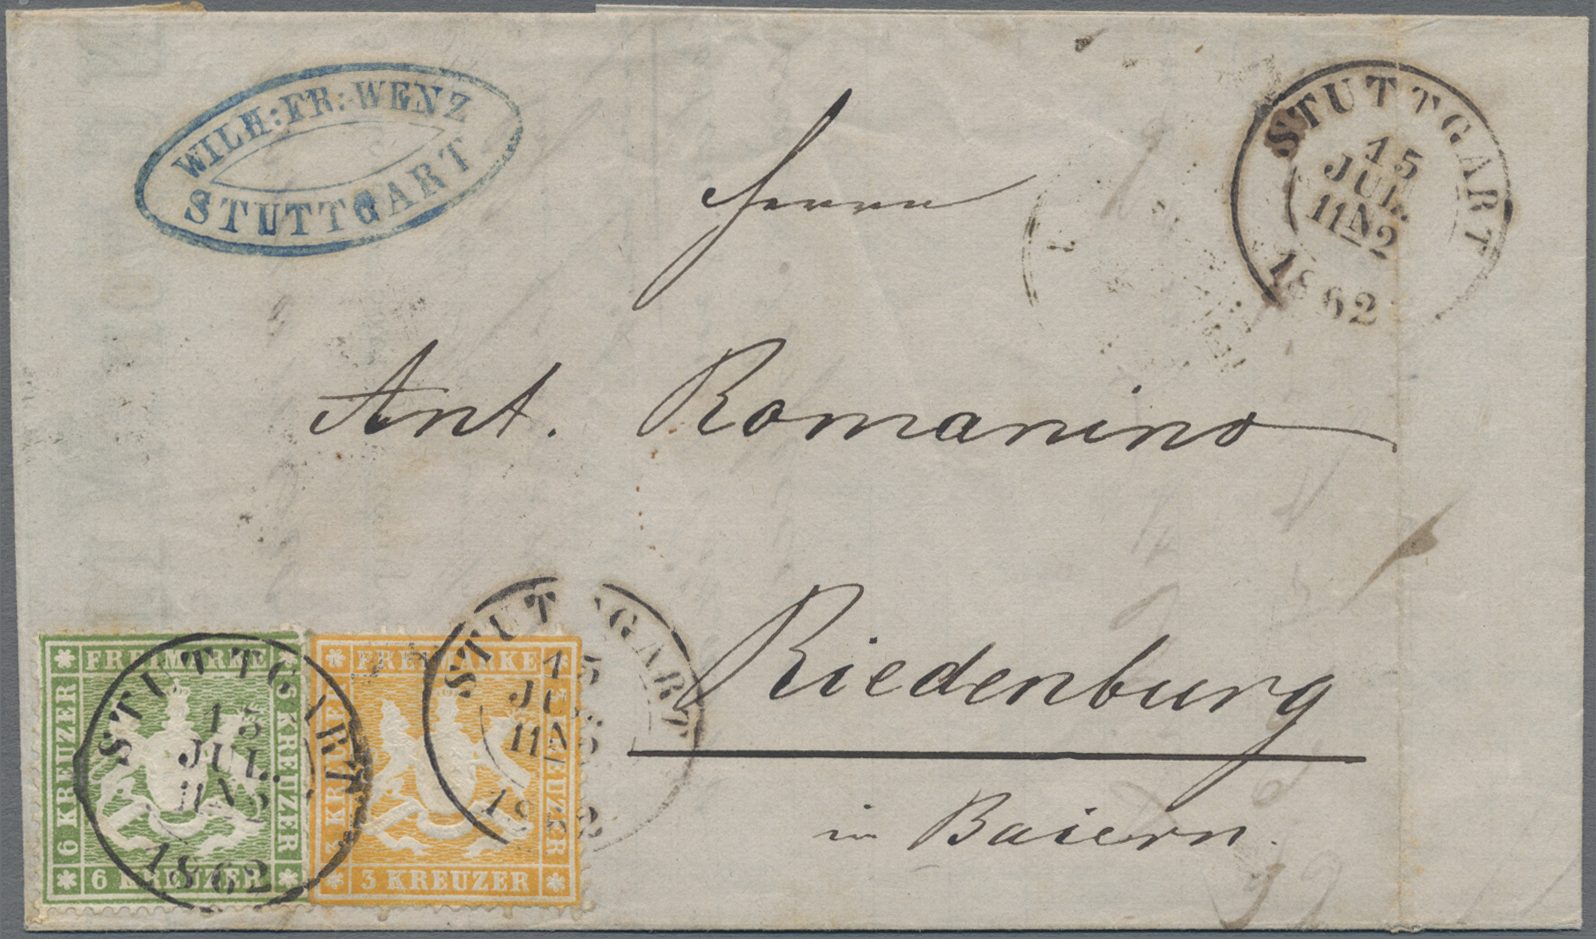 WILH: FR: WENZ
STUTTGART
STUTTGART
15
JUL.
11 N 2
1862
Herrn
Ant. Romanino
Riedenburg
in Baiern.
FREIMARKE
6 KREUZER
6 KREUZER
6 KREUZER
STUTTGART
15
JUL.
1862
FREIMARKE
3 KREUZER
3 KREUZER
3 KREUZER
STUTTGART
15